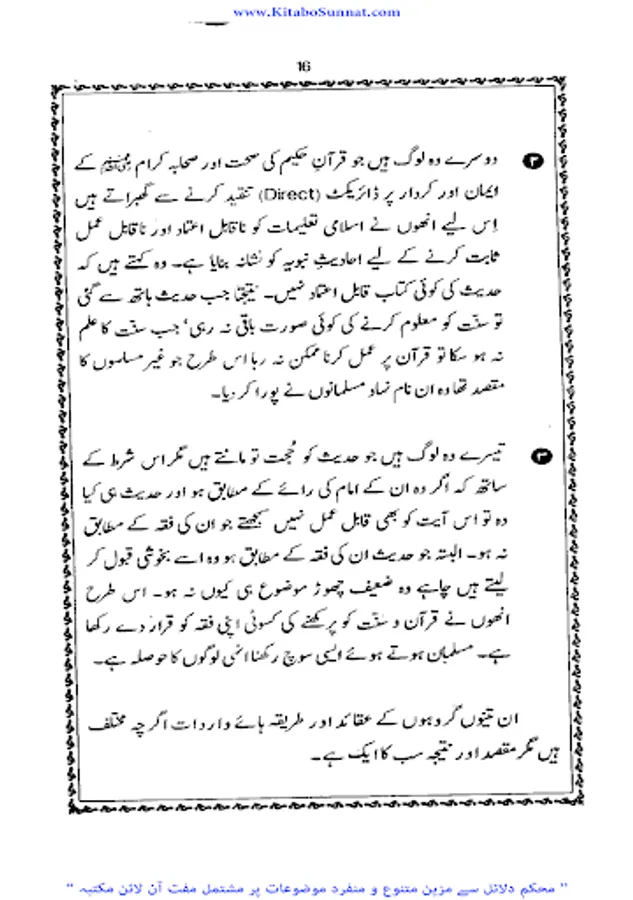 www.KitaboSunnat.com
16
۲ دوسرے وہ لوگ ہیں جو قرآنِ حکیم کی صحت اور صحابہ کرام رضی اللہ عنہم کے
ایمان اور کردار پر ڈائریکٹ (Direct) تنقید کرنے سے گھبراتے ہیں
اِس لیے انھوں نے اسلامی تعلیمات کو ناقابل اعتماد اور ناقابل عمل
ثابت کرنے کے لیے احادیثِ نبویہ کو نشانہ بنایا ہے۔ وہ کہتے ہیں کہ
حدیث کی کوئی کتاب قابل اعتماد نہیں۔ نتیجتاً جب حدیث ہاتھ سے گئی
تو سنّت کو معلوم کرنے کی کوئی صورت باقی نہ رہی، جب سنّت کا علم
نہ ہو سکا تو قرآن پر عمل کرنا ممکن نہ رہا اس طرح جو غیر مسلموں کا
مقصد تھا وہ ان نام نہاد مسلمانوں نے پورا کر دیا۔
۳ تیسرے وہ لوگ ہیں جو حدیث کو حُجت تو مانتے ہیں مگر اس شرط کے
ساتھ کہ اگر وہ ان کے امام کی رائے کے مطابق ہو اور حدیث ہی کیا
وہ تو اس آیت کو بھی قابل عمل نہیں سمجھتے جو ان کی فقہ کے مطابق
نہ ہو۔ البتہ جو حدیث ان کی فقہ کے مطابق ہو وہ اسے بخوشی قبول کر
لیتے ہیں چاہے وہ ضعیف چھوڑ موضوع ہی کیوں نہ ہو۔ اس طرح
انھوں نے قرآن و سنّت کو پرکھنے کی کسوٹی اپنی فقہ کو قرار دے رکھا
ہے۔ مسلمان ہوتے ہوئے ایسی سوچ رکھنا انہی لوگوں کا حوصلہ ہے۔
ان تینوں گروہوں کے عقائد اور طریقہ ہائے واردات اگرچہ مختلف
ہیں مگر مقصد اور نتیجہ سب کا ایک ہے۔
" محکم دلائل سے مزین متنوع و منفرد موضوعات پر مشتمل مفت آن لائن مکتبہ "